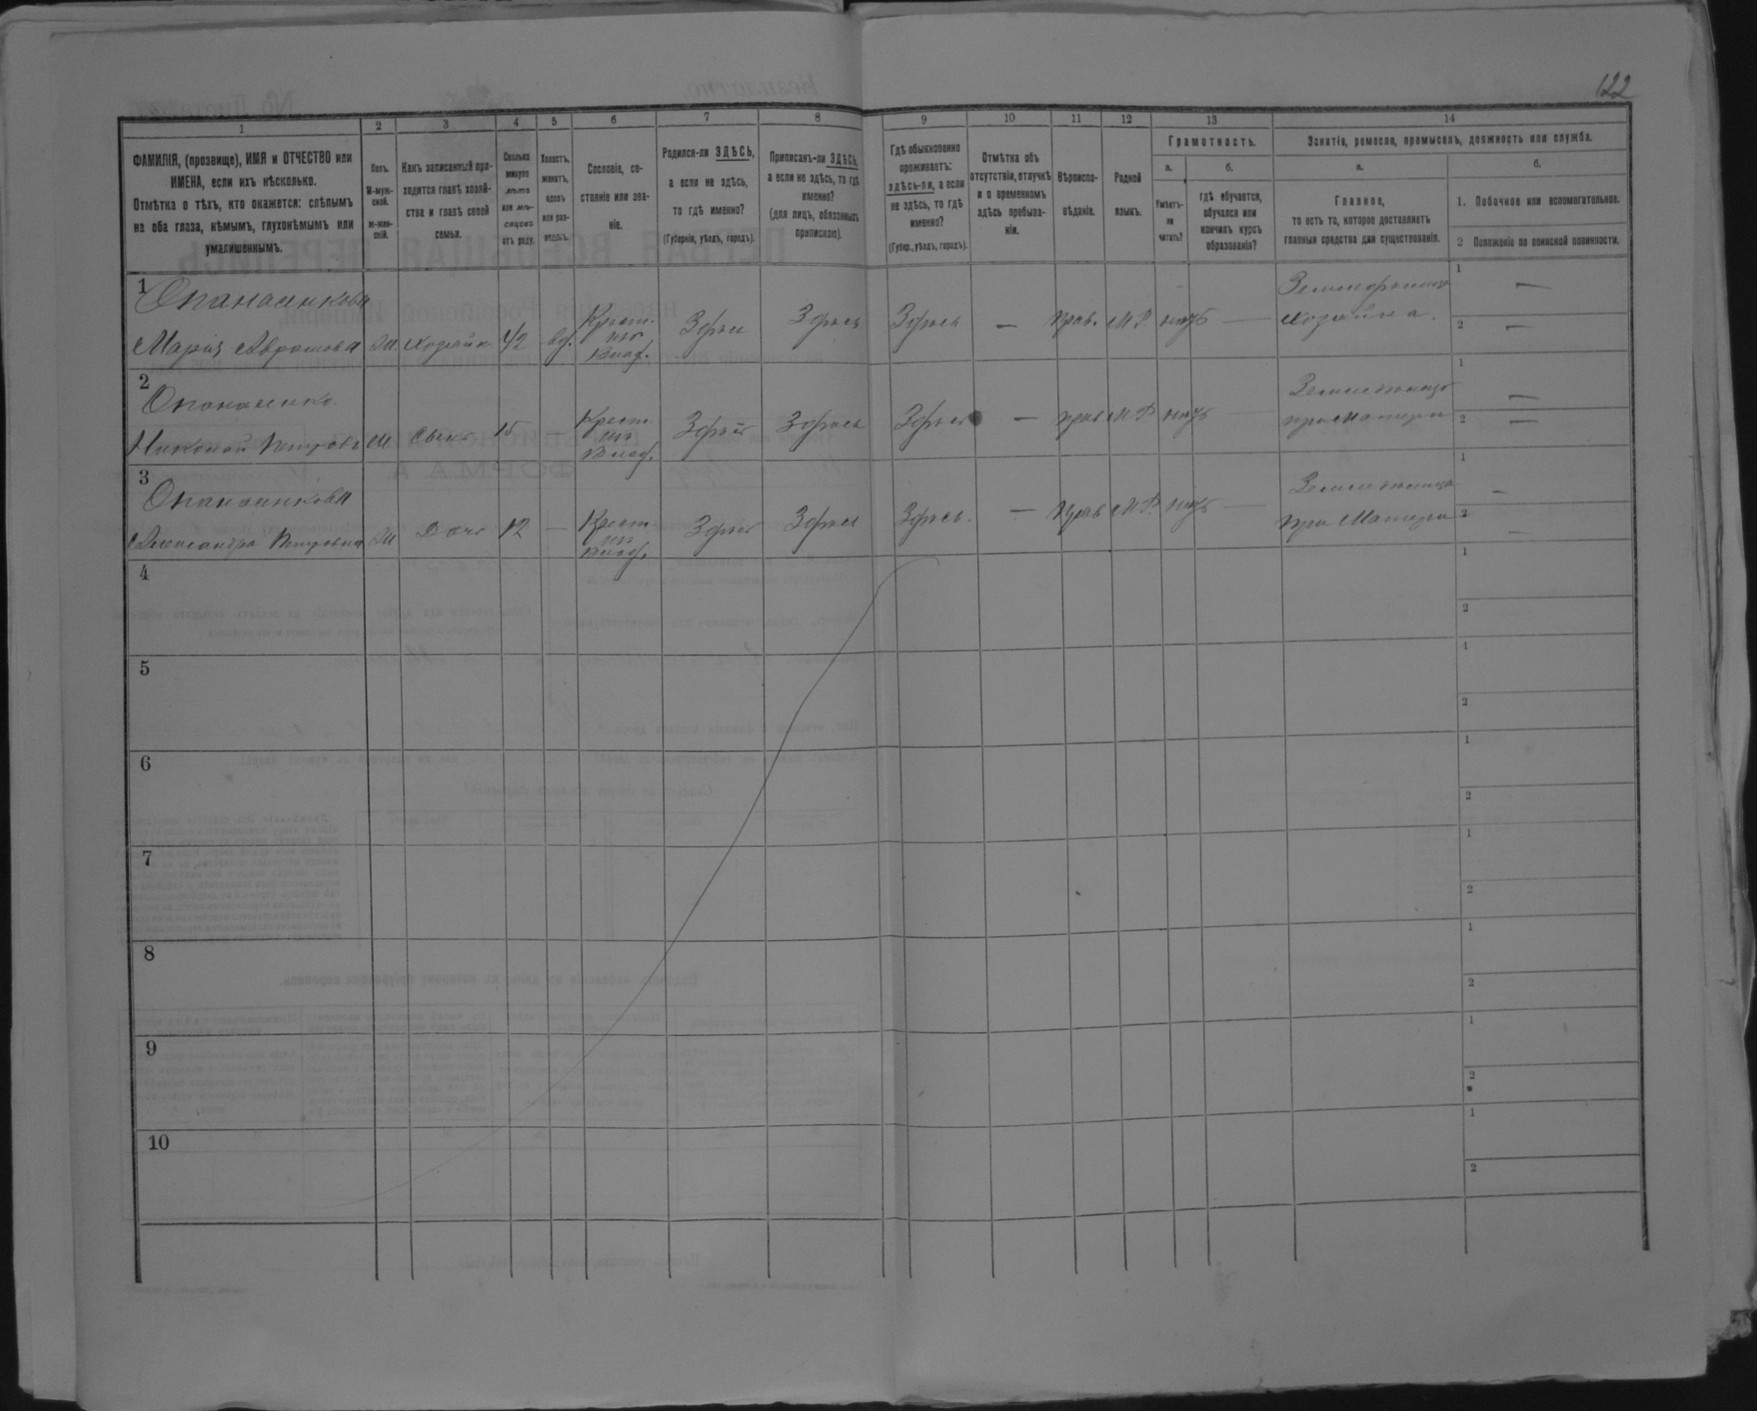 122
1
2
3
4
5
6
7
8
9
10
11
12
13
14
ФАМИЛІЯ, (прозвище), ИМЯ и ОТЧЕСТВО или
ИМЕНА, если ихъ нѣсколько.
Отмѣтка о тѣхъ, кто окажется: слѣпымъ
на оба глаза, нѣмымъ, глухонѣмымъ или
умалишеннымъ.
Полъ.
М-муж-
ской.
Ж-жен-
скій.
Какъ записанный при-
ходится главѣ хозяй-
ства и главѣ своей
семьи.
Сколько
минуло
лѣтъ
или мѣ-
сяцевъ
отъ роду.
Холостъ,
женатъ,
вдовъ
или раз-
веденъ.
Сословіе, со-
стояніе или зва-
ніе.
Родился-ли ЗДѢСЬ,
а если не здѣсь,
то гдѣ именно?
(Губернія, уѣздъ, городъ).
Приписанъ-ли ЗДѢСЬ,
а если не здѣсь, то гдѣ
именно?
(для лицъ, обязанныхъ
припискою).
Гдѣ обыкновенно
проживаетъ:
здѣсь-ли, а если
не здѣсь, то гдѣ
именно?
(Губер., уѣздъ, городъ).
Отмѣтка объ
отсутствіи, отлучкѣ
и о временномъ
здѣсь пребыва-
ніи.
Вѣроиспо-
вѣданіе.
Родной
языкъ.
Грамотность.
а.
Умѣетъ-
ли
читать?
б.
гдѣ обучается,
обучался или
кончилъ курсъ
образованія?
Занятіе, ремесло, промыселъ, должность или служба.
а.
Главное,
то есть то, которое доставляетъ
главныя средства для существованія.
б.
1. Побочное или вспомогательное.
2 Положеніе по воинской повинности.
1
Опанасенкова
Марія Абрамова Ж Хозяйка 42 вд. Крест. из владѣ. Здѣсь Здѣсь Здѣсь — Прав. М.Р. нѣтъ —
хозяйка.
1 —
2 —
2
Опанасенко
Николай Петровъ М Сынъ 15 — Крест. из владѣ. Здѣсь Здѣсь Здѣсь — Прав М.Р. нѣтъ —
при Матери
1 —
2 —
3
Опанасенкова
Александра Петровна Ж Дочь 12 — Крест. из владѣ. Здѣсь Здѣсь Здѣсь. — Прав М.Р. нѣтъ —
при Матери
1 —
2 —
4
1
2
5
1
2
6
1
2
7
1
2
8
1
2
9
1
2
10
1
2